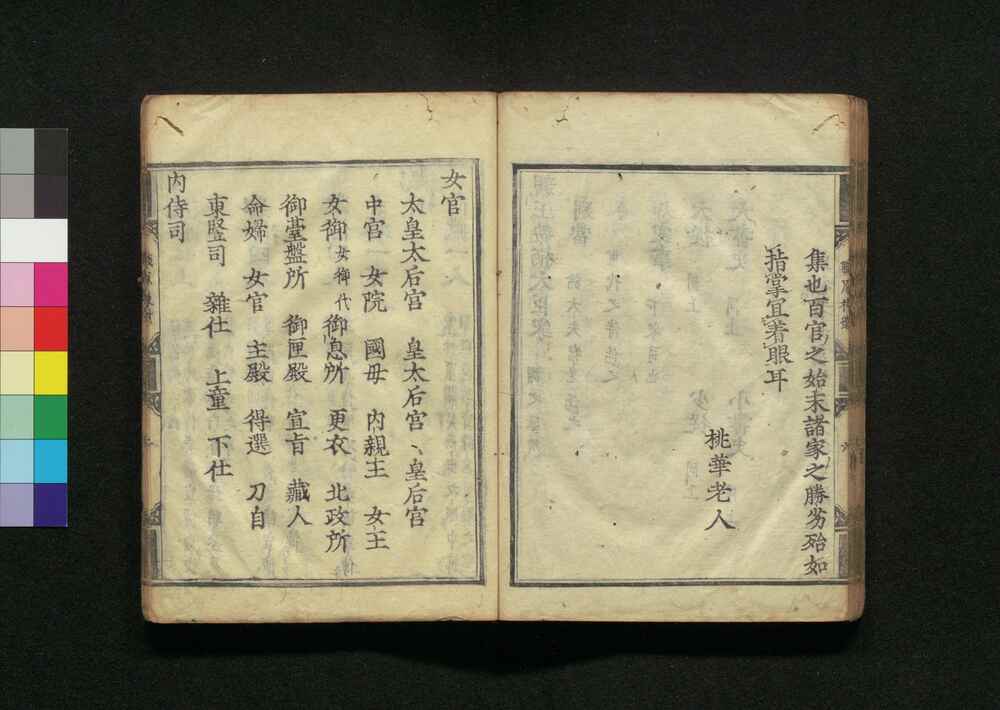 集也百官之始末諸家之勝劣殆如
指掌宜著眼耳
桃華老人
女官
太皇太后宮 皇太后宮 皇后宮
中宮 女院 國母 内親王 女王
女御 女御代 御息所 更衣 北政所
御臺盤所 御匣殿 宣旨 藏人
命婦 女官 主殿 得選 刀自
東豎司 雜仕 上童 下仕
内侍司